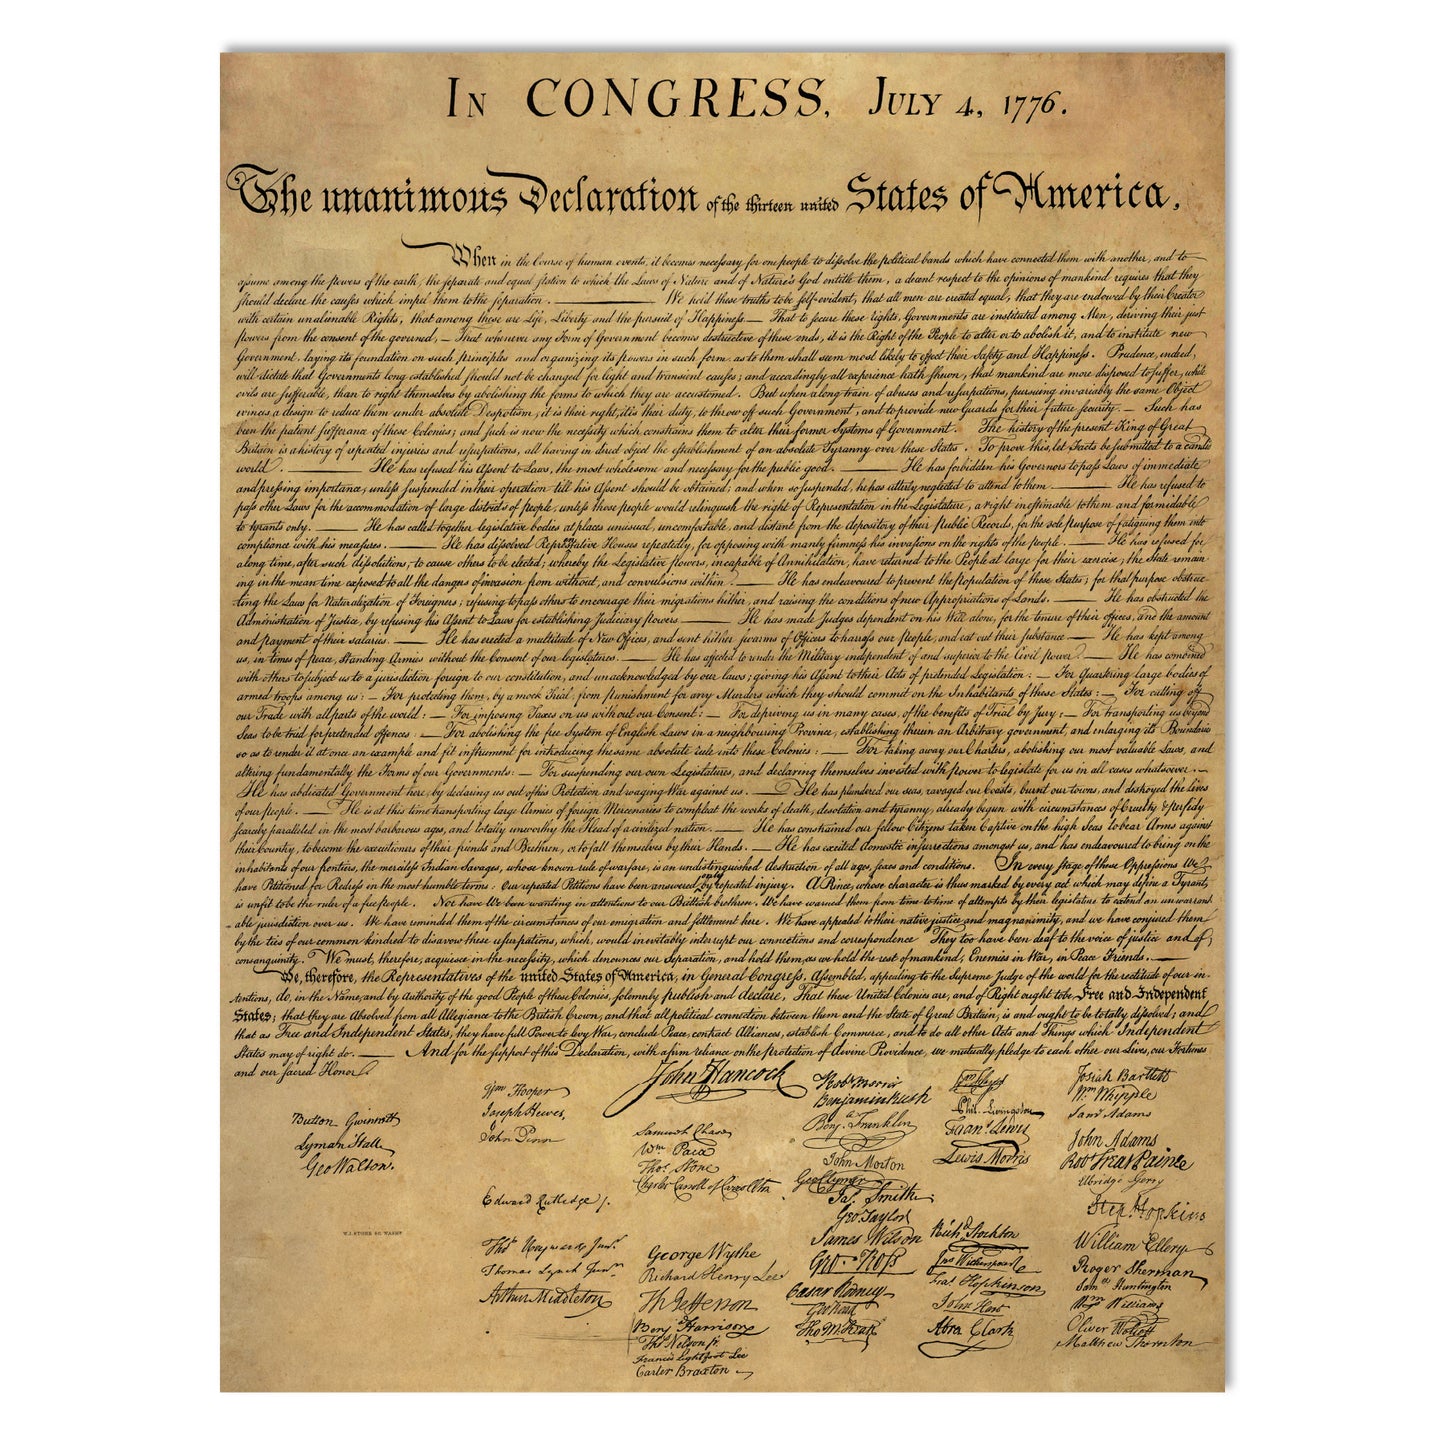 In CONGRESS, July 4, 1776.
The unanimous Declaration of the thirteen united States of America,
When in the Course of human events, it becomes necessary for one people to dissolve the political bands which have connected them with another, and to
assume among the powers of the earth, the separate and equal station to which the Laws of Nature and of Nature's God entitle them, a decent respect to the opinions of mankind requires that they
should declare the causes which impel them to the separation. — We hold these truths to be self-evident, that all men are created equal, that they are endowed by their Creator
with certain unalienable Rights, that among these are Life, Liberty and the pursuit of Happiness — That to secure these rights, Governments are instituted among Men, deriving their just
powers from the consent of the governed, — That whenever any Form of Government becomes destructive of these ends, it is the Right of the People to alter or to abolish it, and to institute new
Government, laying its foundation on such principles and organizing its powers in such form, as to them shall seem most likely to effect their Safety and Happiness. Prudence, indeed,
will dictate that Governments long established should not be changed for light and transient causes; and accordingly all experience hath shewn, that mankind are more disposed to suffer, while
evils are sufferable, than to right themselves by abolishing the forms to which they are accustomed. But when a long train of abuses and usurpations, pursuing invariably the same Object
evinces a design to reduce them under absolute Despotism, it is their right, it is their duty, to throw off such Government, and to provide new Guards for their future security. — Such has
been the patient sufferance of these Colonies; and such is now the necessity which constrains them to alter their former Systems of Government. The history of the present King of Great
Britain is a history of repeated injuries and usurpations, all having in direct object the establishment of an absolute Tyranny over these States. To prove this, let Facts be submitted to a candid
world. — He has refused his Assent to Laws, the most wholesome and necessary for the public good. — He has forbidden his Governors to pass Laws of immediate
and pressing importance, unless suspended in their operation till his Assent should be obtained; and when so suspended, he has utterly neglected to attend to them. — He has refused to
pass other Laws for the accommodation of large districts of people, unless those people would relinquish the right of Representation in the Legislature, a right inestimable to them and formidable
to tyrants only. — He has called together legislative bodies at places unusual, uncomfortable, and distant from the depository of their Public Records, for the sole purpose of fatiguing them into
compliance with his measures. — He has dissolved Representative Houses repeatedly, for opposing with manly firmness his invasions on the rights of the people. — He has refused for
a long time, after such dissolutions, to cause others to be elected; whereby the Legislative powers, incapable of Annihilation, have returned to the People at large for their exercise; the State remain-
ing in the mean time exposed to all the dangers of invasion from without, and convulsions within. — He has endeavoured to prevent the population of these States; for that purpose obstruc-
ting the Laws for Naturalization of Foreigners; refusing to pass others to encourage their migrations hither, and raising the conditions of new Appropriations of Lands. — He has obstructed the
Administration of Justice, by refusing his Assent to Laws for establishing Judiciary powers — He has made Judges dependent on his Will alone, for the tenure of their offices, and the amount
and payment of their salaries. — He has erected a multitude of New Offices, and sent hither swarms of Officers to harrass our people, and eat out their substance — He has kept among
us, in times of peace, Standing Armies without the Consent of our legislatures. — He has affected to render the Military independent of and superior to the Civil power. — He has combined
with others to subject us to a jurisdiction foreign to our constitution, and unacknowledged by our laws; giving his Assent to their Acts of pretended Legislation: — For Quartering large bodies of
armed troops among us: — For protecting them, by a mock Trial, from punishment for any Murders which they should commit on the Inhabitants of these States: — For cutting off
our Trade with all parts of the world: — For imposing Taxes on us without our Consent: — For depriving us in many cases, of the benefits of Trial by Jury: — For transporting us beyond
Seas to be tried for pretended offences — For abolishing the free System of English Laws in a neighbouring Province, establishing therein an Arbitrary government, and enlarging its Boundaries
so as to render it at once an example and fit instrument for introducing the same absolute rule into these Colonies: — For taking away our Charters, abolishing our most valuable Laws, and
altering fundamentally the Forms of our Governments: — For suspending our own Legislatures, and declaring themselves invested with power to legislate for us in all cases whatsoever. —
He has abdicated Government here, by declaring us out of his Protection and waging War against us. — He has plundered our seas, ravaged our Coasts, burnt our towns, and destroyed the lives
of our people. — He is at this time transporting large Armies of foreign Mercenaries to compleat the works of death, desolation and tyranny, already begun with circumstances of Cruelty & perfidy
scarcely paralleled in the most barbarous ages, and totally unworthy the Head of a civilized nation. — He has constrained our fellow Citizens taken Captive on the high Seas to bear Arms against
their Country, to become the executioners of their friends and Brethren, or to fall themselves by their Hands. — He has excited domestic insurrections amongst us, and has endeavoured to bring on the
inhabitants of our frontiers, the merciless Indian Savages, whose known rule of warfare, is an undistinguished destruction of all ages, sexes and conditions. In every stage of these Oppressions We
have Petitioned for Redress in the most humble terms: Our repeated Petitions have been answered only by repeated injury. A Prince, whose character is thus marked by every act which may define a Tyrant,
is unfit to be the ruler of a free people. Nor have We been wanting in attentions to our Brittish brethren. We have warned them from time to time of attempts by their legislature to extend an unwarrant-
able jurisdiction over us. We have reminded them of the circumstances of our emigration and settlement here. We have appealed to their native justice and magnanimity, and we have conjured them
by the ties of our common kindred to disavow these usurpations, which, would inevitably interrupt our connections and correspondence They too have been deaf to the voice of justice and of
consanguinity. We must, therefore, acquiesce in the necessity, which denounces our Separation, and hold them, as we hold the rest of mankind, Enemies in War, in Peace Friends. —
We, therefore, the Representatives of the united States of America, in General Congress, Assembled, appealing to the Supreme Judge of the world for the rectitude of our in-
tentions, do, in the Name, and by authority of the good People of these Colonies, solemnly publish and declare, That these United Colonies are, and of Right ought to be Free and Independent
States; that they are Absolved from all Allegiance to the British Crown, and that all political connection between them and the State of Great Britain, is and ought to be totally dissolved; and
that as Free and Independent States, they have full Power to levy War, conclude Peace, contract Alliances, establish Commerce, and to do all other Acts and Things which Independent
States may of right do. — And for the support of this Declaration, with a firm reliance on the protection of divine Providence, we mutually pledge to each other our Lives, our Fortunes
and our sacred Honor.
Button Gwinnett
Lyman Hall
Geo Walton.
Wm Hooper
Joseph Hewes,
John Penn
Edward Rutledge
Thos Heyward Junr.
Thomas Lynch Junr.
Arthur Middleton
John Hancock
Samuel Chase
Wm Paca
Thos. Stone
Charles Carroll of Carrollton
George Wythe
Richard Henry Lee
Th Jefferson
Benj Harrison
Thos Nelson jr.
Francis Lightfoot Lee
Carter Braxton
Robt Morris
Benjamin Rush
Benja. Franklin
John Morton
Geo Clymer
Jas. Smith
Geo. Taylor
James Wilson
Geo. Ross
Caesar Rodney
Geo Read
Tho M:Kean
Wm Floyd
Phil. Livingston
Frans. Lewis
Lewis Morris
Richd. Stockton
Jno Witherspoon
Fras. Hopkinson
John Hart
Abra Clark
Josiah Bartlett
Wm Whipple
Saml Adams
John Adams
Robt Treat Paine
Elbridge Gerry
Step. Hopkins
William Ellery
Roger Sherman
Saml Huntington
Wm Williams
Oliver Wolcott
Matthew Thornton
W.J. STONE SC. WASHN.